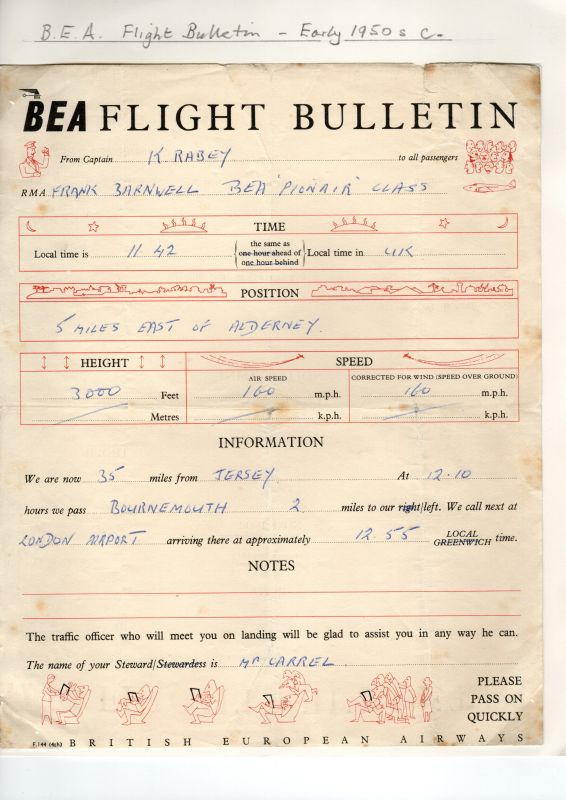 B.E.A. Flight Bulletin - Early 1950s c.
BEA FLIGHT BULLETIN
From Captain K. RABEY to all passengers
RMA FRANK BARNWELL BEA 'PIONAIR' CLASS
TIME
the same as
Local time is 11.42 one hour ahead of Local time in UK
one hour behind
POSITION
5 MILES EAST OF ALDERNEY.
HEIGHT SPEED
AIR SPEED CORRECTED FOR WIND (SPEED OVER GROUND)
3000 Feet 160 m.p.h. 160 m.p.h.
Metres k.p.h. k.p.h.
INFORMATION
We are now 35 miles from JERSEY At 12.10
hours we pass BOURNEMOUTH 2 miles to our right/left. We call next at
LONDON AIRPORT arriving there at approximately 12.55 LOCAL GREENWICH time.
NOTES
The traffic officer who will meet you on landing will be glad to assist you in any way he can.
The name of your Steward/Stewardess is Mr CARREL.
PLEASE
PASS ON
QUICKLY
F.144 (4th) BRITISH EUROPEAN AIRWAYS